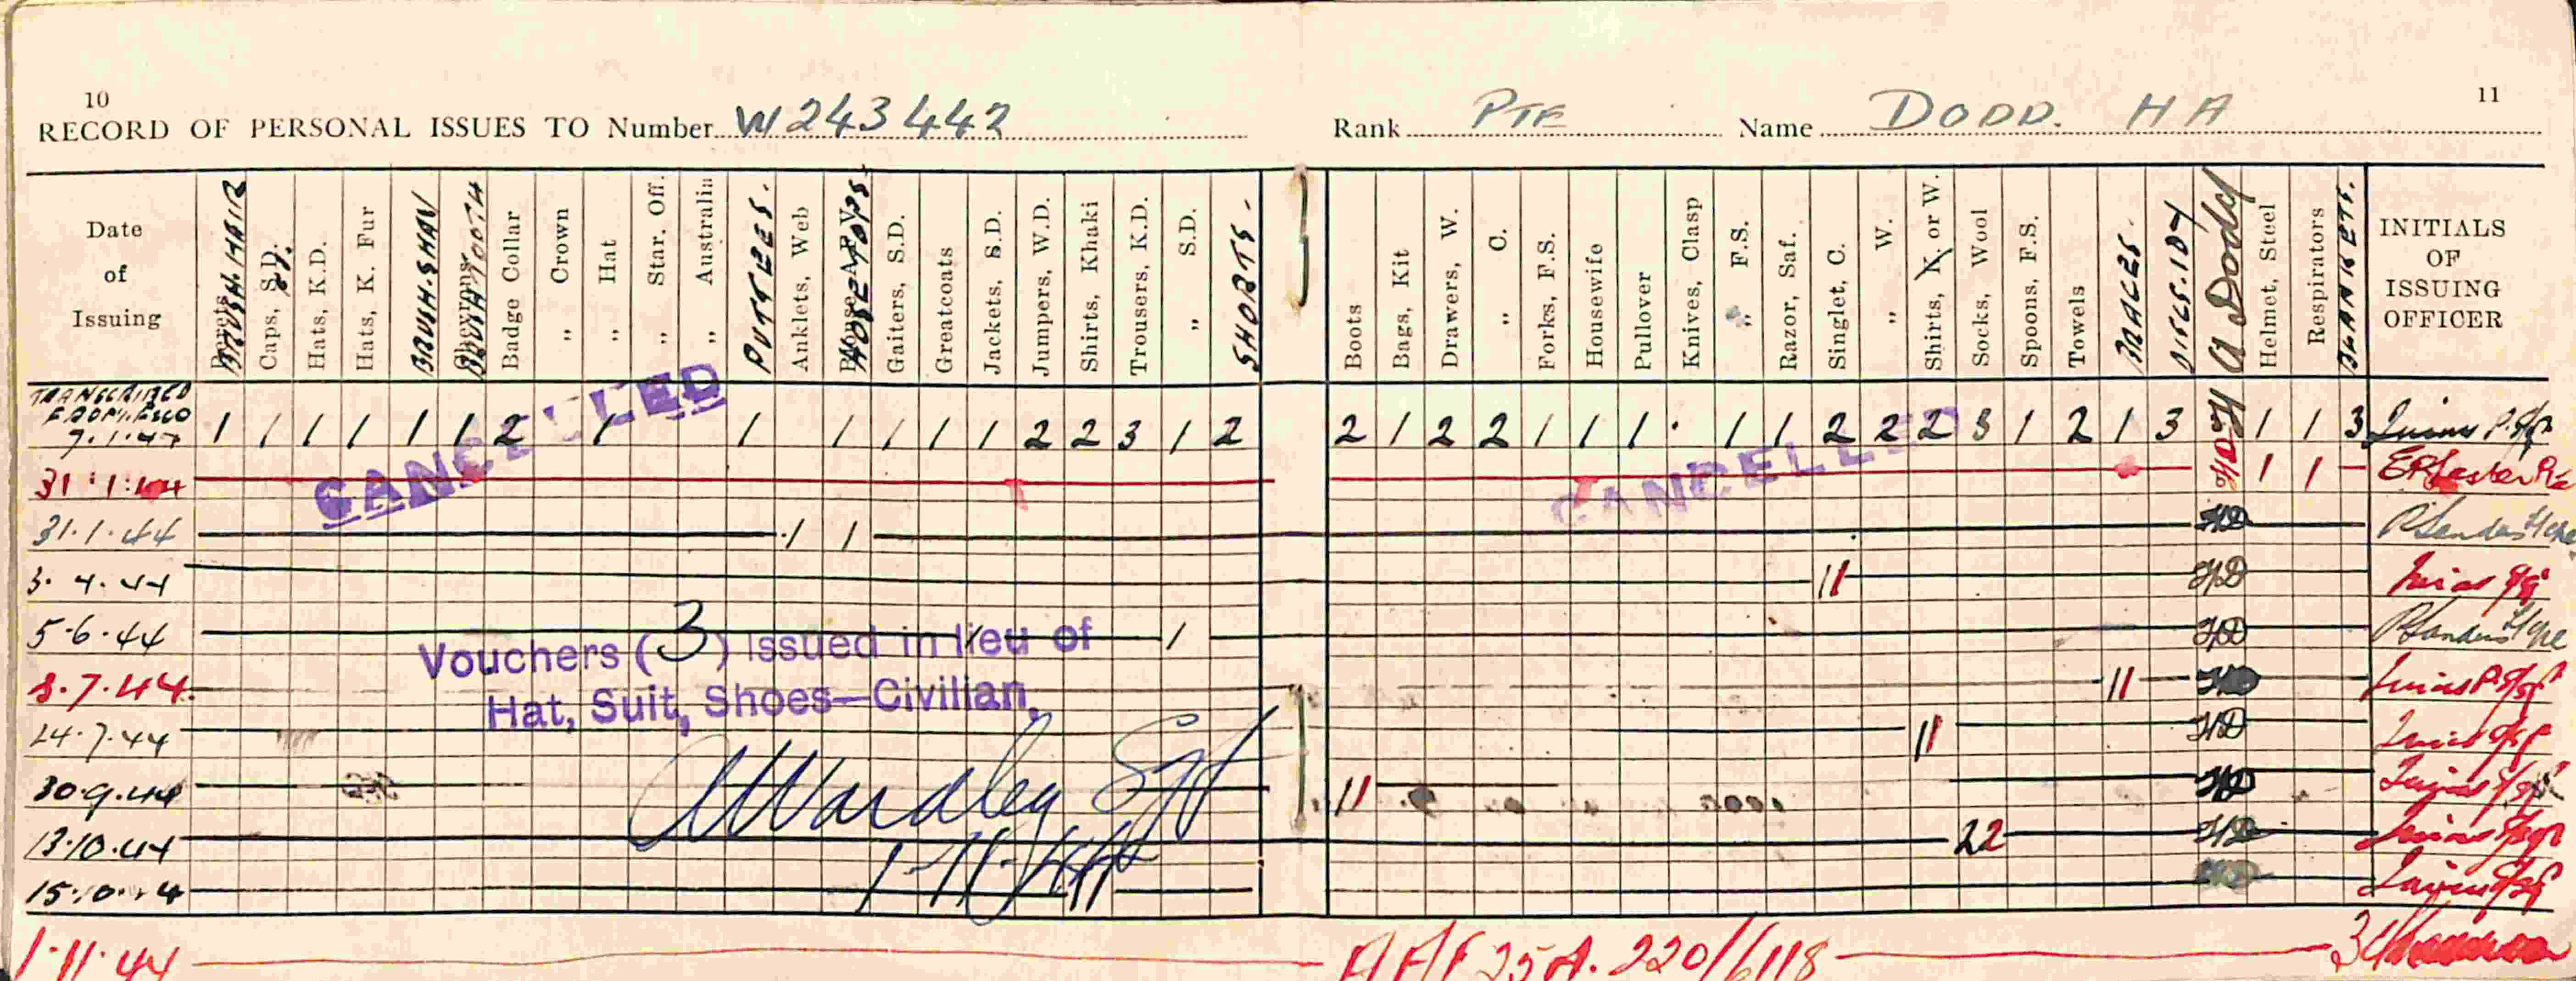 10
RECORD OF PERSONAL ISSUES TO Number W243442
Rank PTE Name DODD. H A
11
Date of Issuing
BRUSH. HAIR
Caps, S.D.
Hats, K.D.
Hats, K. Fur
BRUSH. SHAV
BRUSH TOOTH
Badge Collar
„ Crown
„ Hat
„ Star. Off.
„ Australia
PUTTEES.
Anklets, Web
HOSE TOPS.
Gaiters, S.D.
Greatcoats
Jackets, S.D.
Jumpers, W.D.
Shirts, Khaki
Trousers, K.D.
„ S.D.
SHORTS.
Boots
Bags, Kit
Drawers, W.
„ C.
Forks, F.S.
Housewife
Pullover
Knives, Clasp
„ F.S.
Razor, Saf.
Singlet, C.
„ W.
Shirts, K or W.
Socks, Wool
Spoons, F.S.
Towels
BRACES.
DISCS. IDY
A Dodd
Helmet, Steel
Respirators
BLANKETS.
INITIALS OF ISSUING OFFICER
TRANSCRIBED
FROM
1 1 1 1 1 1 2 1 1 1 1 1 1 2 2 3 1 2 2 1 2 2 1 1 1 1 1 2 2 2 3 1 2 1 3 HAD 1 1 3
CANCELLED
CANCELLED
31.1.44 1 1
31.1.44 1 1 HD
3.4.44 11 HD
5.6.44 1 1 HD
Vouchers (3) issued in lieu of
8.7.44 11 HD
Hat, Suit, Shoes—Civilian.
24.7.44 11 HD
30.9.44 11 HD
Wardley Sgt
13.10.44 22 HD
1-11-44
1.11.44 AAF 25A. 220/6118